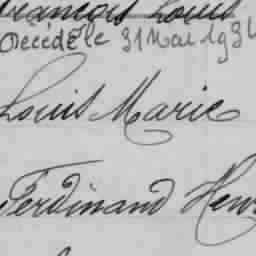 François Louis
Décédé le 31 Mai 193
Louis Marie
Ferdinand Hen